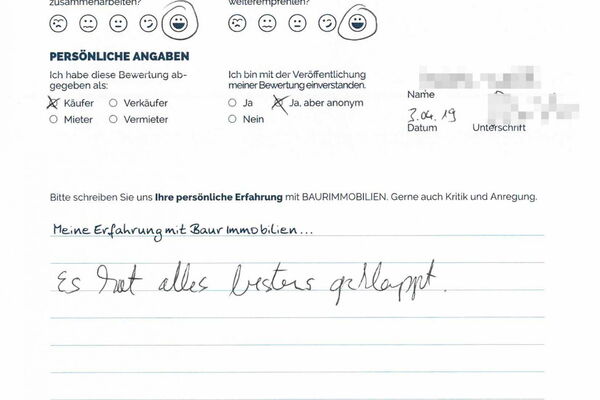 zusammenarbeiten?
weiterempfehlen?
PERSÖNLICHE ANGABEN
Ich habe diese Bewertung ab-
gegeben als:
Käufer
Verkäufer
Mieter
Vermieter
Ich bin mit der Veröffentlichung
meiner Bewertung einverstanden.
Ja
Ja, aber anonym
Nein
Name
3.04.19
Datum
Unterschrift
Bitte schreiben Sie uns Ihre persönliche Erfahrung mit BAURIMMOBILIEN. Gerne auch Kritik und Anregung.
Meine Erfahrung mit Baur Immobilien...
Es hat alles bestens geklappt.